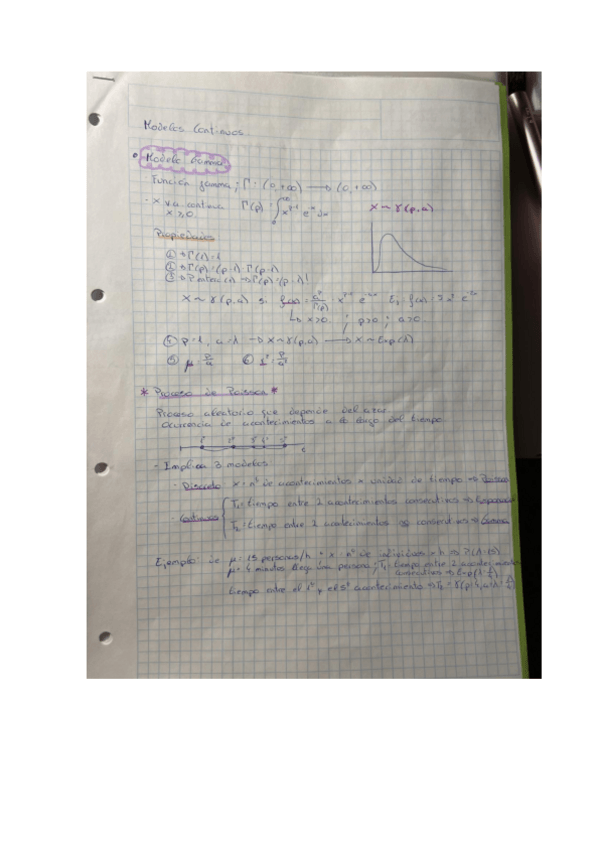 Modelos Continuos
Modelo Gamma
· Función gamma; Γ: (0,+∞) → (0,+∞)
· X v.a. continua Γ(p) = ∫₀^+∞ x^p-1 e^-x dx X ~ γ(p,a)
X ≥ 0
Propiedades
① → Γ(1) = 1
② → Γ(p) = (p-1) Γ(p-1)
③ → Γ(p) = (p-1)!
X ~ γ(p,a) si f(x) = a^p/Γ(p) · x^p-1 e^-ax Ej
↳ x>0 ; p>0 ; a>0
④ p=1, a=λ → X ~ γ(p,a) → X ~ Exp(λ)
⑤ μ = p/a ⑥ σ² = p/a²
* Proceso de Poisson *
Proceso aleatorio que depende del azar
Ocurrencia de acontecimientos a lo largo del tiempo
1º 2º 3º 4º 5º
- Implica 3 modelos
· Discreto X = nº de acontecimientos x unidad de tiempo ⇒ Poisson
· Continuos T₁ = tiempo entre 2 acontecimientos consecutivos ⇒ Exponencial
T₂ = tiempo entre 2 acontecimientos no consecutivos ⇒ Gamma
Ejemplo: μ = 15 personas/h X = nº de individuos x h
μ = 4 minutos llega una persona; T₁ = tiempo entre 2 acontecimientos
consecutivos ⇒ Exp
tiempo entre el 1º y el 5º acontecimiento ⇒ T₂